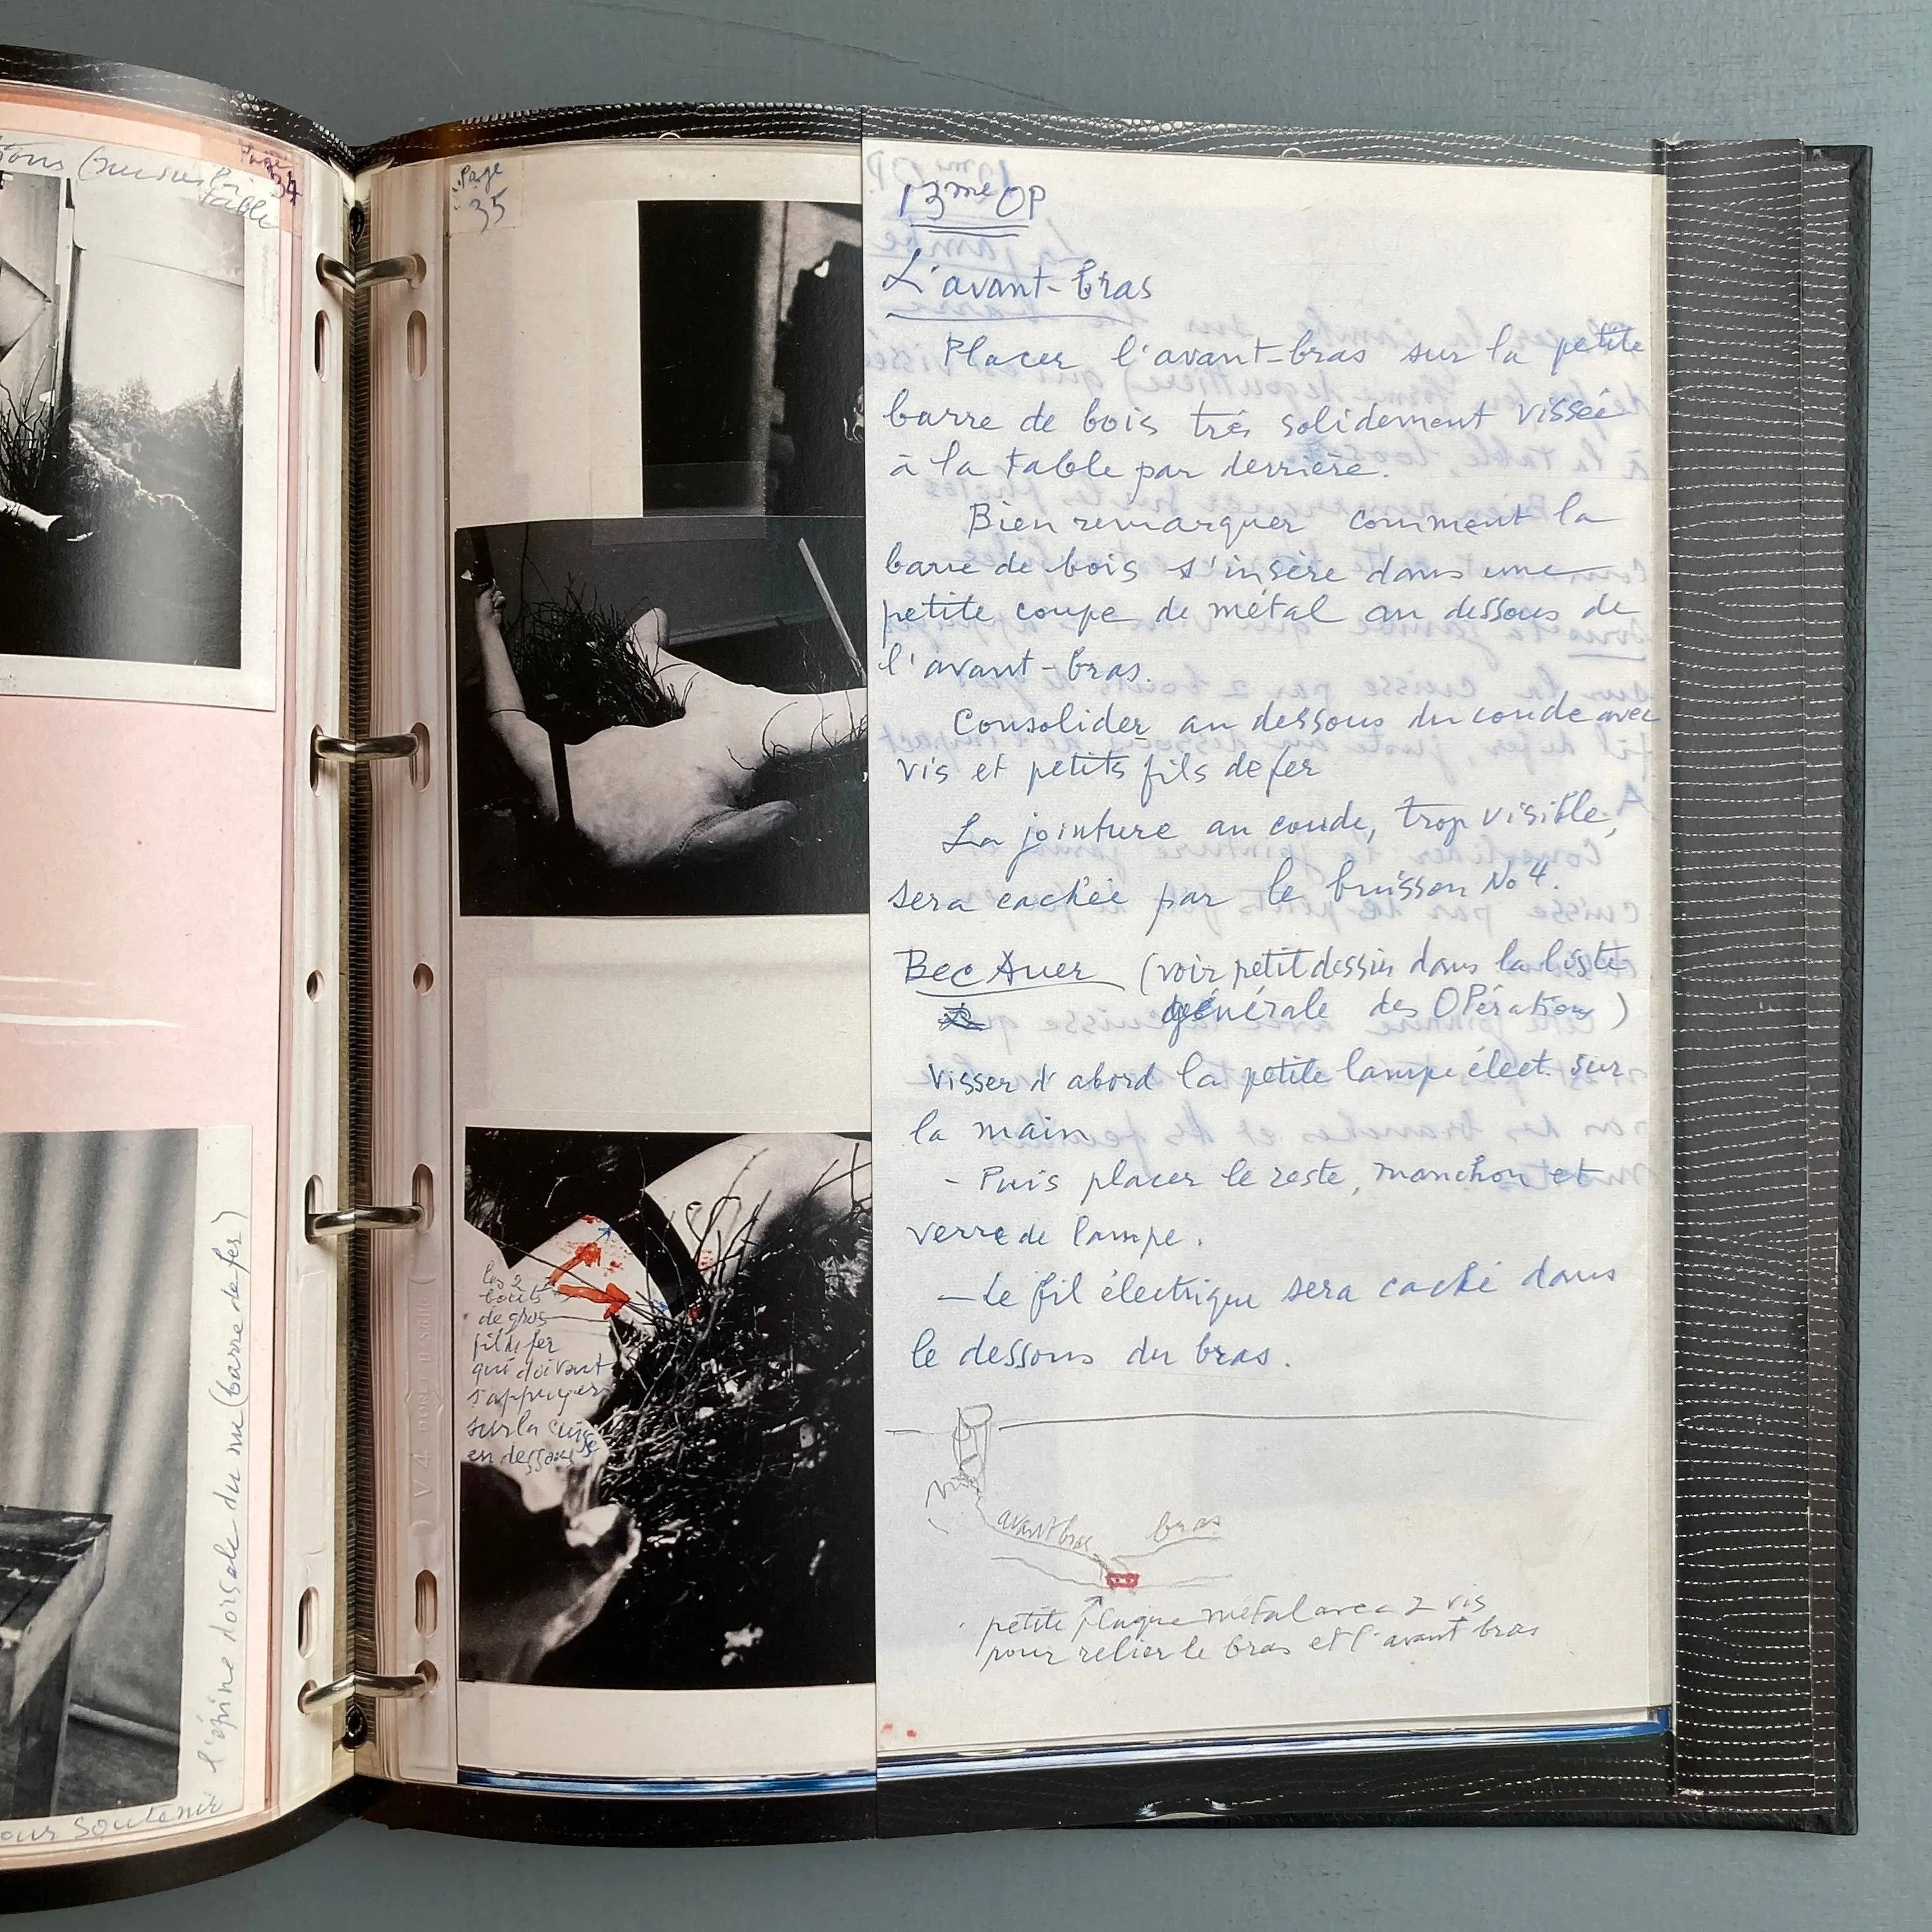 Page
34
table
l'épine dorsale du nu (barre de fer)
pour soutenir
Page
35
les 2
bouts
de gros
fil de fer
qui doivent
s'appuyer
sur la cuisse
en dessous
13me OP
L'avant-bras
Placer l'avant-bras sur la petite
barre de bois trés solidement vissée
à la table par derrière.
Bien remarquer comment la
barre de bois s'insère dans une
petite coupe de métal au dessous de
l'avant-bras.
Consolider au dessous du coude avec
vis et petits fils de fer
La jointure au coude, trop visible,
sera cachée par le buisson No 4.
Bec Auer (voir petit dessin dans la liste
générale des OPérations)
Visser d'abord la petite lampe élect. sur
la main
- Puis placer le reste, manchon et
verre de lampe.
- Le fil électrique sera caché dans
le dessous du bras.
avant bras bras
petite plaque métal avec 2 vis
pour relier le bras et l'avant bras